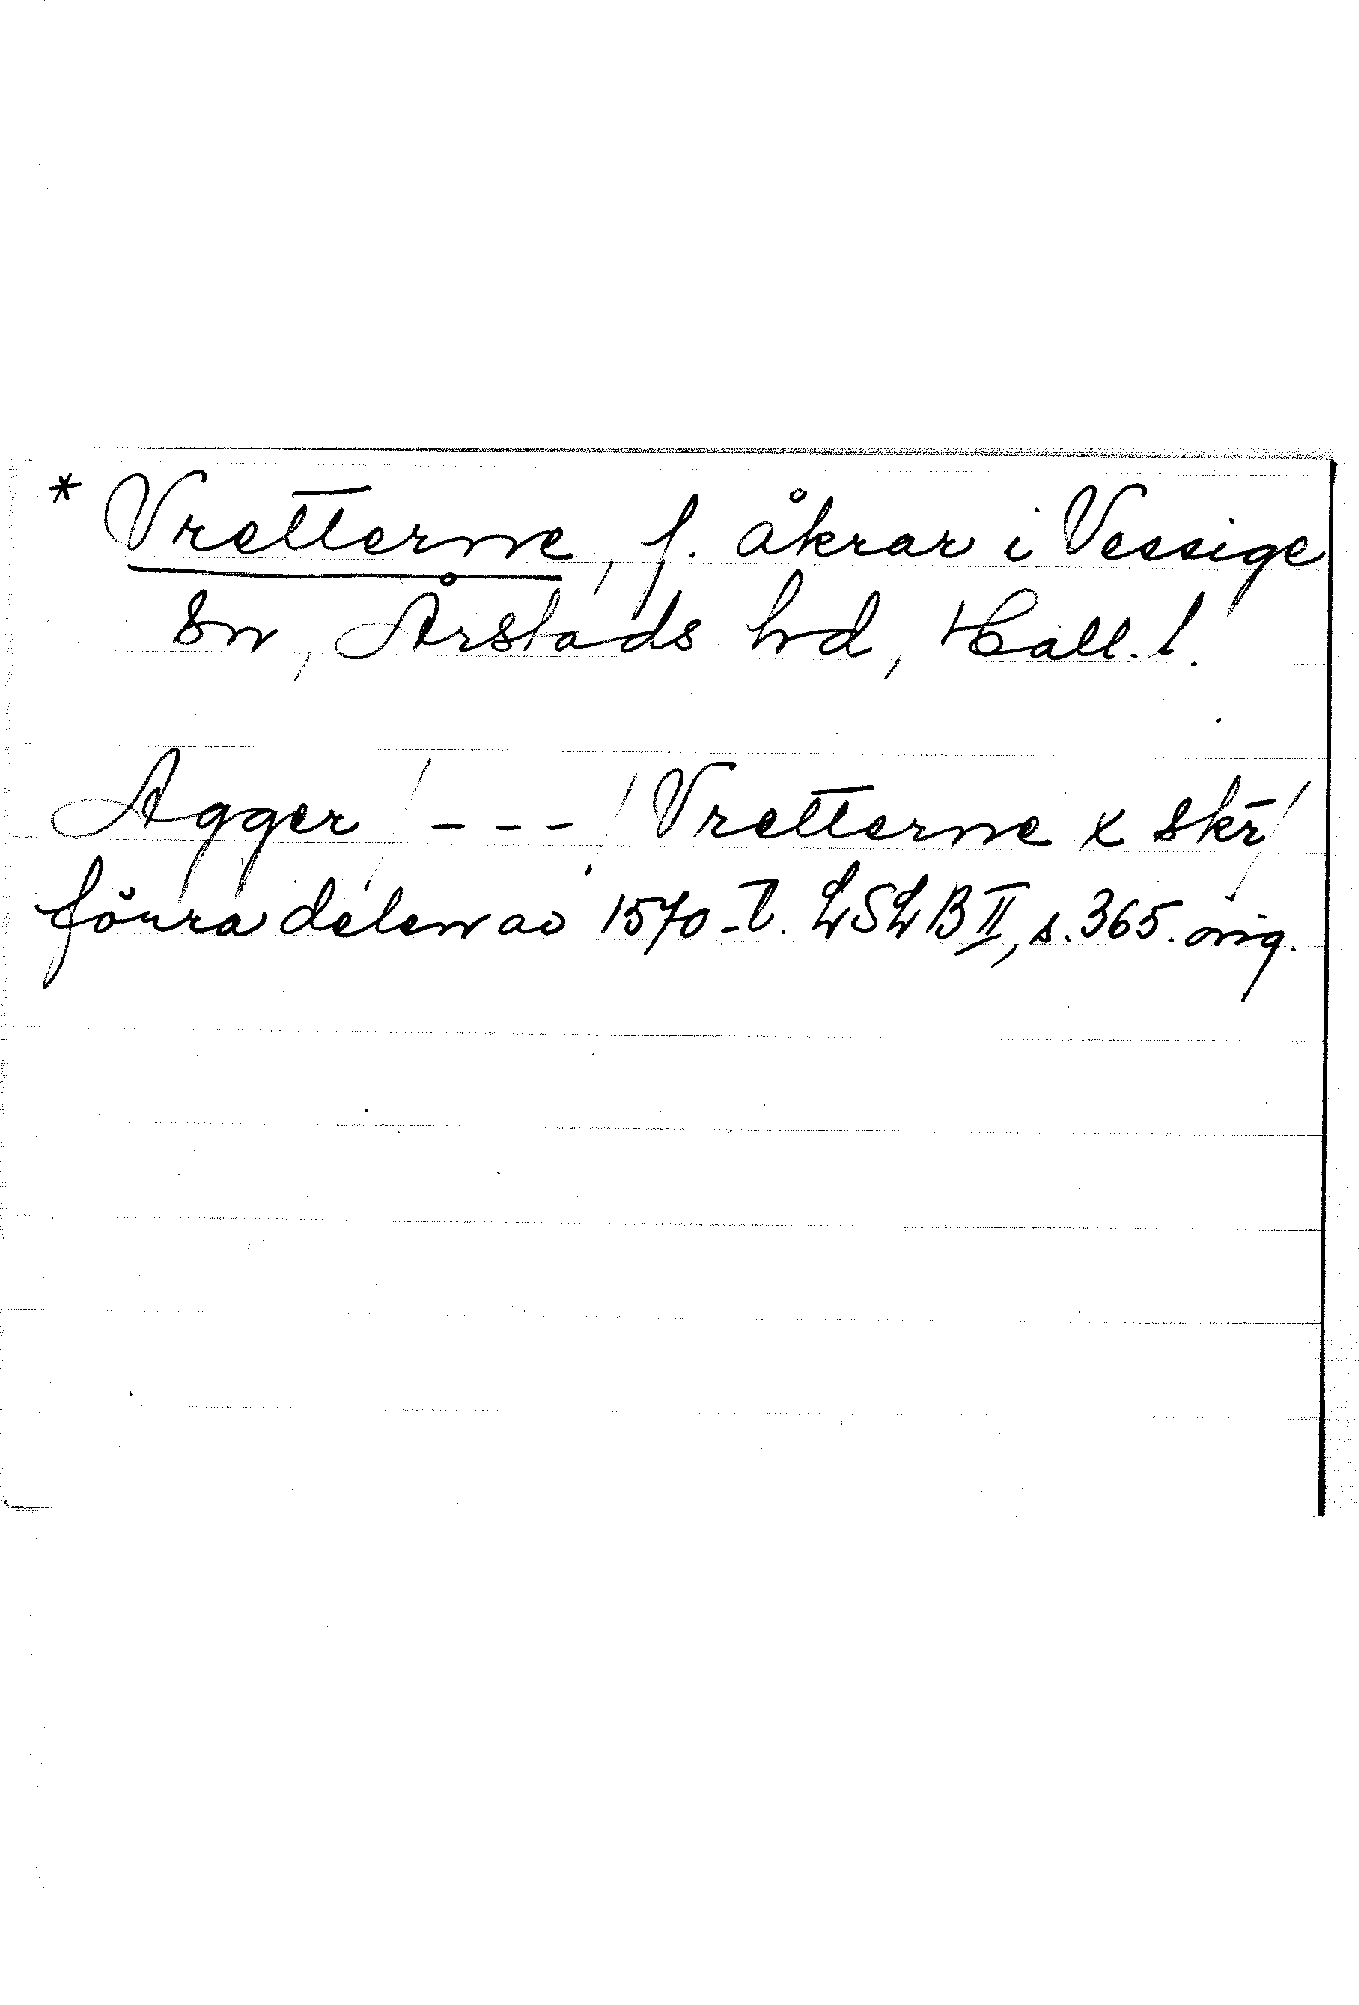 * Vretterne, f. åkrar i Vessige
sn, Årstads hd, Hall. l.
Agger / - - - / Vretterne x skr /
förra delen av 1570-t. LSLB II, s. 365. orig.